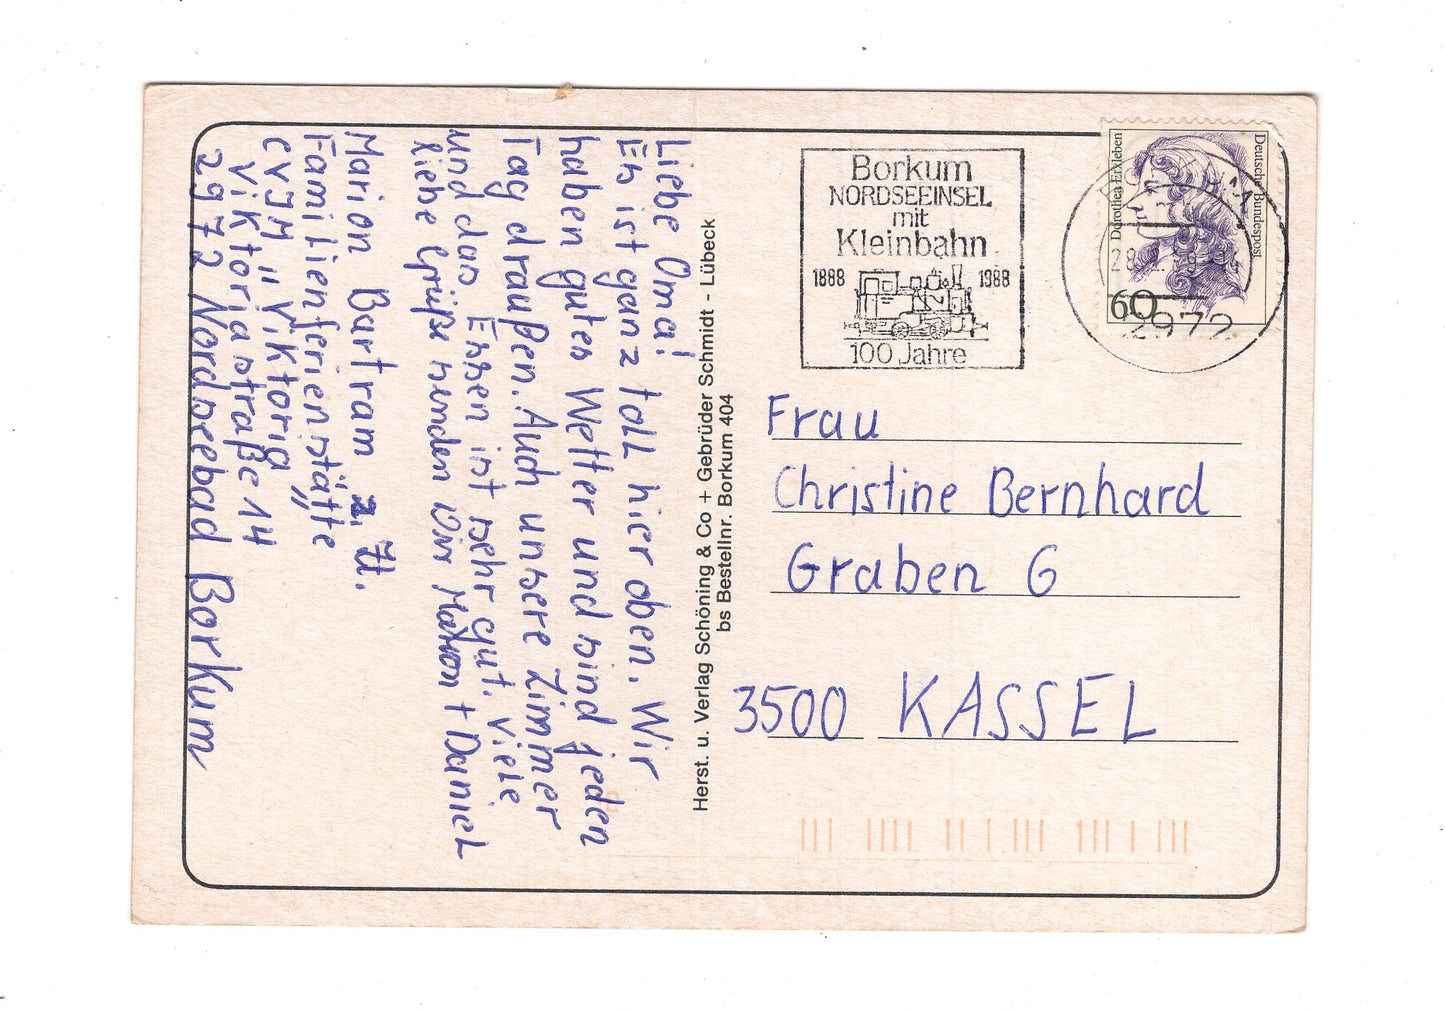 Liebe Oma!
Es ist ganz toll hier oben. Wir
haben gutes Wetter und sind jeden
Tag draußen. Auch unsere Zimmer
und das Essen ist sehr gut. Viele
liebe Grüße senden Dir Marion + Daniel
Marion Bartram z. Zt.
Familienferienstätte
CVJM "Viktoria"
Viktoriastraße 14
2972 Nordseebad Borkum
Herst. u. Verlag Schöning & Co + Gebrüder Schmidt - Lübeck
bs Bestellnr. Borkum 404
Borkum
NORDSEEINSEL
mit
Kleinbahn
1888 1988
100 Jahre
Dorothea Erxleben
Deutsche Bundespost
60
2972
Frau
Christine Bernhard
Graben 6
3500 KASSEL